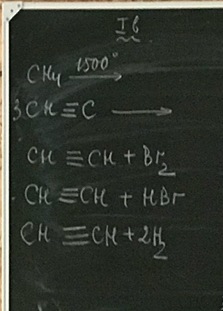 I в
CH₄ 1500° ⟶
3CH≡C ⟶
CH≡CH + Br₂
CH≡CH + HBr
CH≡CH + 2H₂